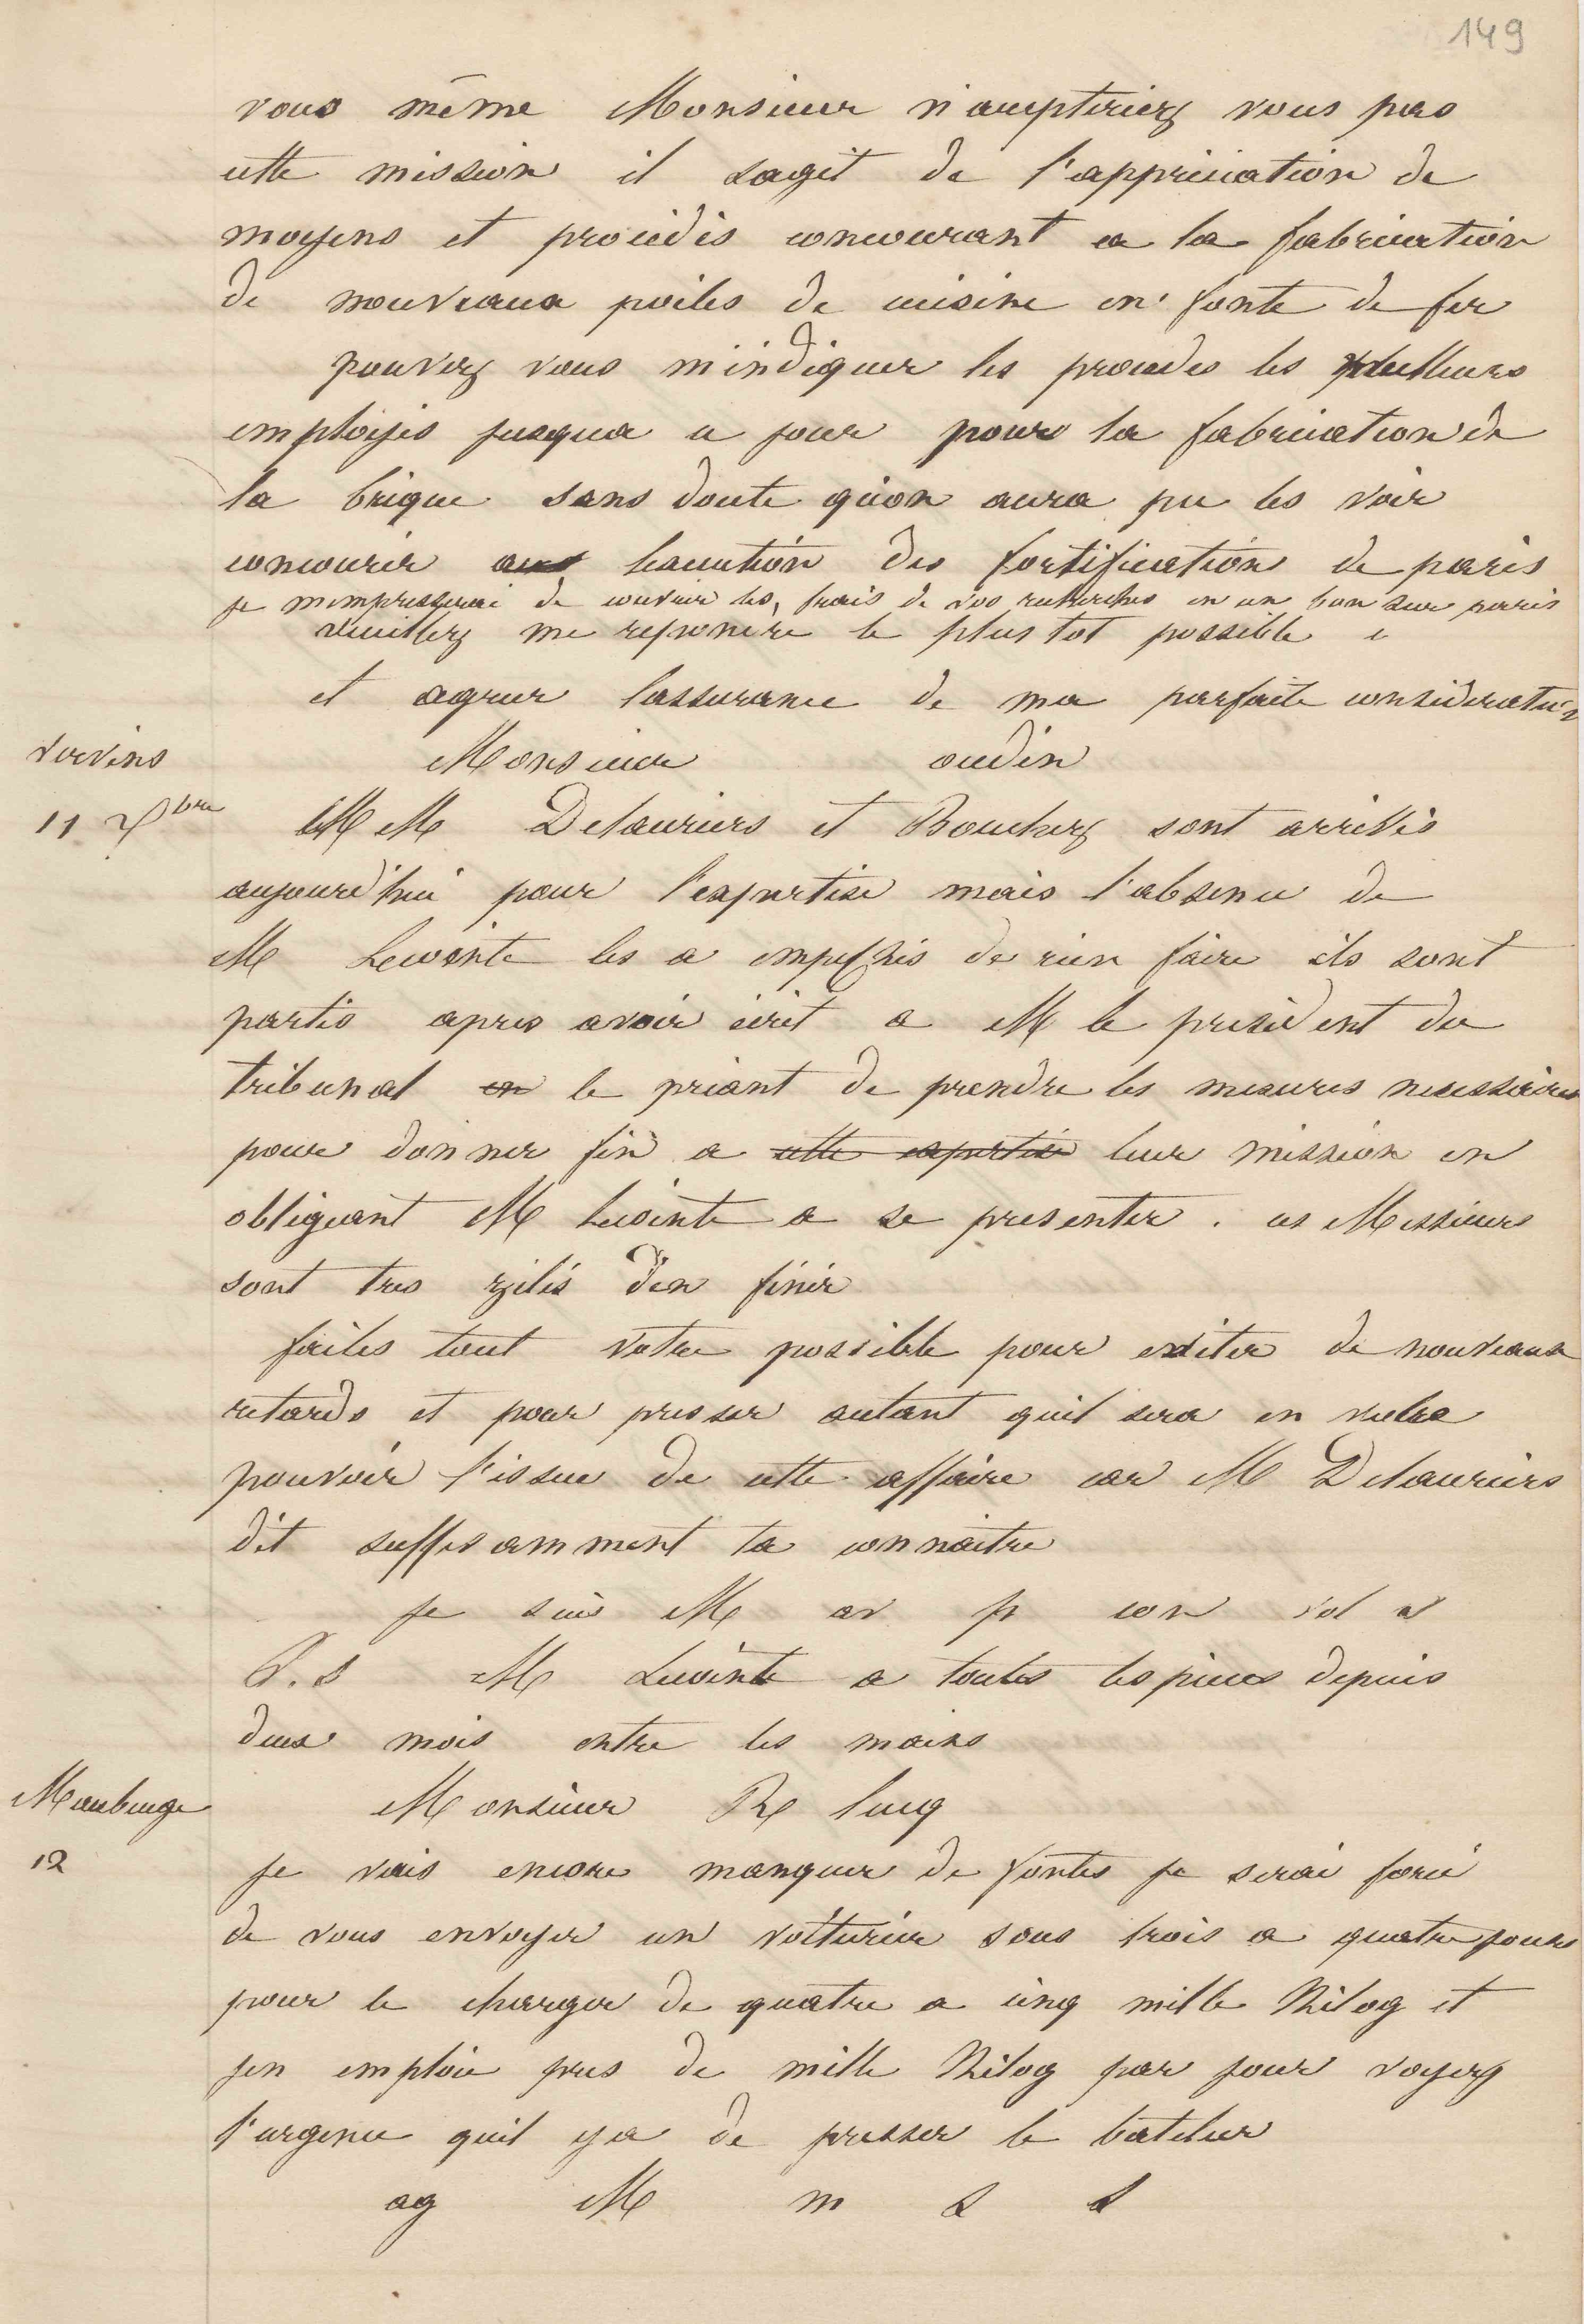 149
vous même Monsieur n'accepteriez vous pas
cette mission il sagit de l'appréciation de
moyens et procédés concourant a la fabrication
de nouveaux poëles de cuisine en fonte de fer
pouvez vous m'indiquer les procedes les meilleurs
emploiyés jusqua ce jour pour la fabrication de
la brique sans doute qu'on aura pu les voir
concourir lexecution des fortification de paris
je m'empresserai de couvrir les frais de vos recherches en un bon sur paris
veuillez me reponére le plus tot possible
et agreer lassurance de ma parfaite consideration
vervins
Monsieur oudin
11 Xbre
MM Delauriers et Bouchez sont arrivés
aujourd'hui pour l'expertise mais l'absence de
M Lecointe les a empechés de rien faire ils sont
partis apres avoir écrit a M le president du
tribunal en le priant de prendre les mesures necessaires
pour donner fin a cette expertise leur mission en
obligeant M Lecointe a se presenter . ces Messieurs
sont tres zélés d'en finir
faites tout votre possible pour eviter de nouveaux
retards et pour presser autant quil sera en votre
pouvoir l'issue de cette affaire car M Delauriers
dit suffisamment la connaitre
je suis M av p con vol a
P.S M Lecointe a toutes les pieces depuis
deux mois entre les mains
Maubeuge
Monsieur R Lucq
12
je vais encore manquer de fontes je serai forcé
de vous envoyer un voiturier sous trois a quatre jours
pour le charger de quatre a cinq mille Kilog et
jen emploie pres de mille Kilog par jour voyez
l'urgence quil ya de presser le batelier
ag M m s s